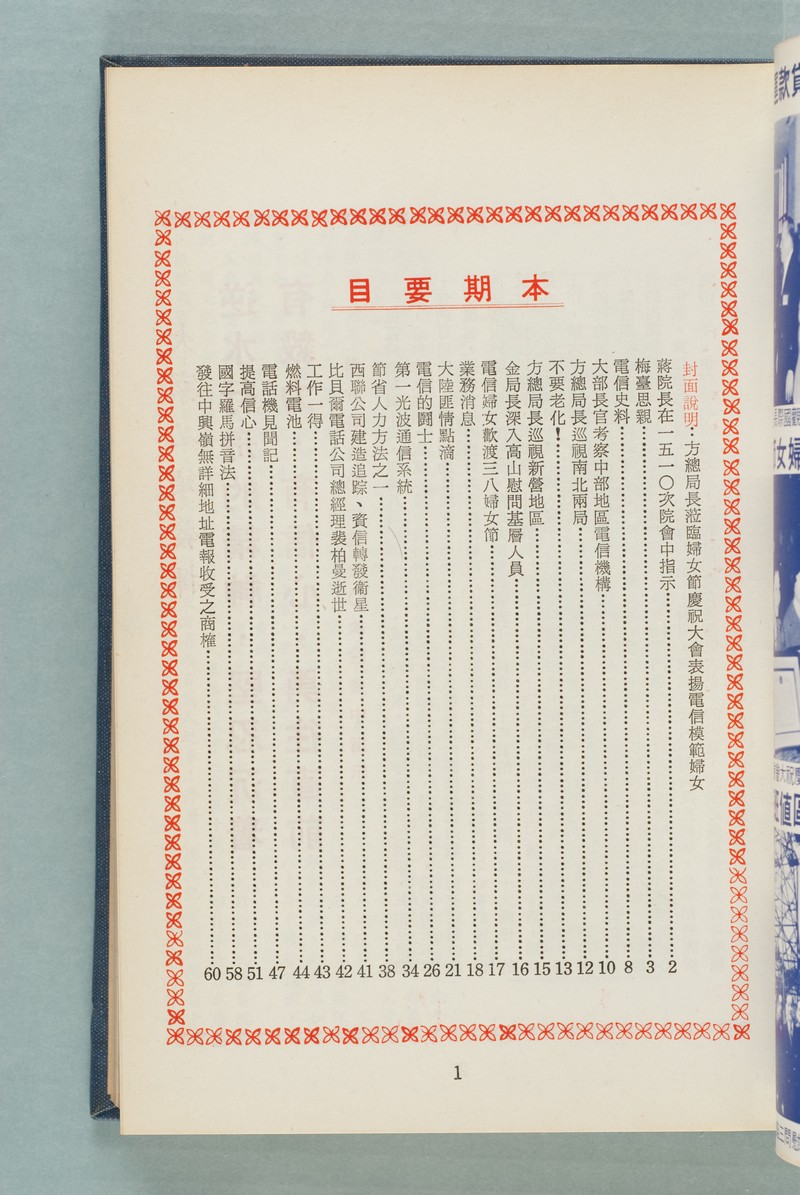 本期要目
封面說明：方總局長蒞臨婦女節慶祝大會表揚電信模範婦女
蔣院長在一五一〇次院會中指示……2
梅臺思親……3
電信史料……8
大部長官考察中部地區電信機構……10
方總局長巡視南北兩局……12
不要老化！……13
方總局長巡視新營地區……15
金局長深入高山慰問基層人員……16
電信婦女歡渡三八婦女節……17
業務消息……18
大陸匪情點滴……21
電信的鬪士……26
第一光波通信系統……34
節省人力方法之一……38
西聯公司建造追踪、資信轉發衞星……41
比貝爾電話公司總經理裴柏曼逝世……42
工作一得……43
燃料電池……44
電話機見聞記……47
提高信心……51
國字羅馬拼音法……58
發往中興嶺無詳細地址電報收受之商榷……60
1